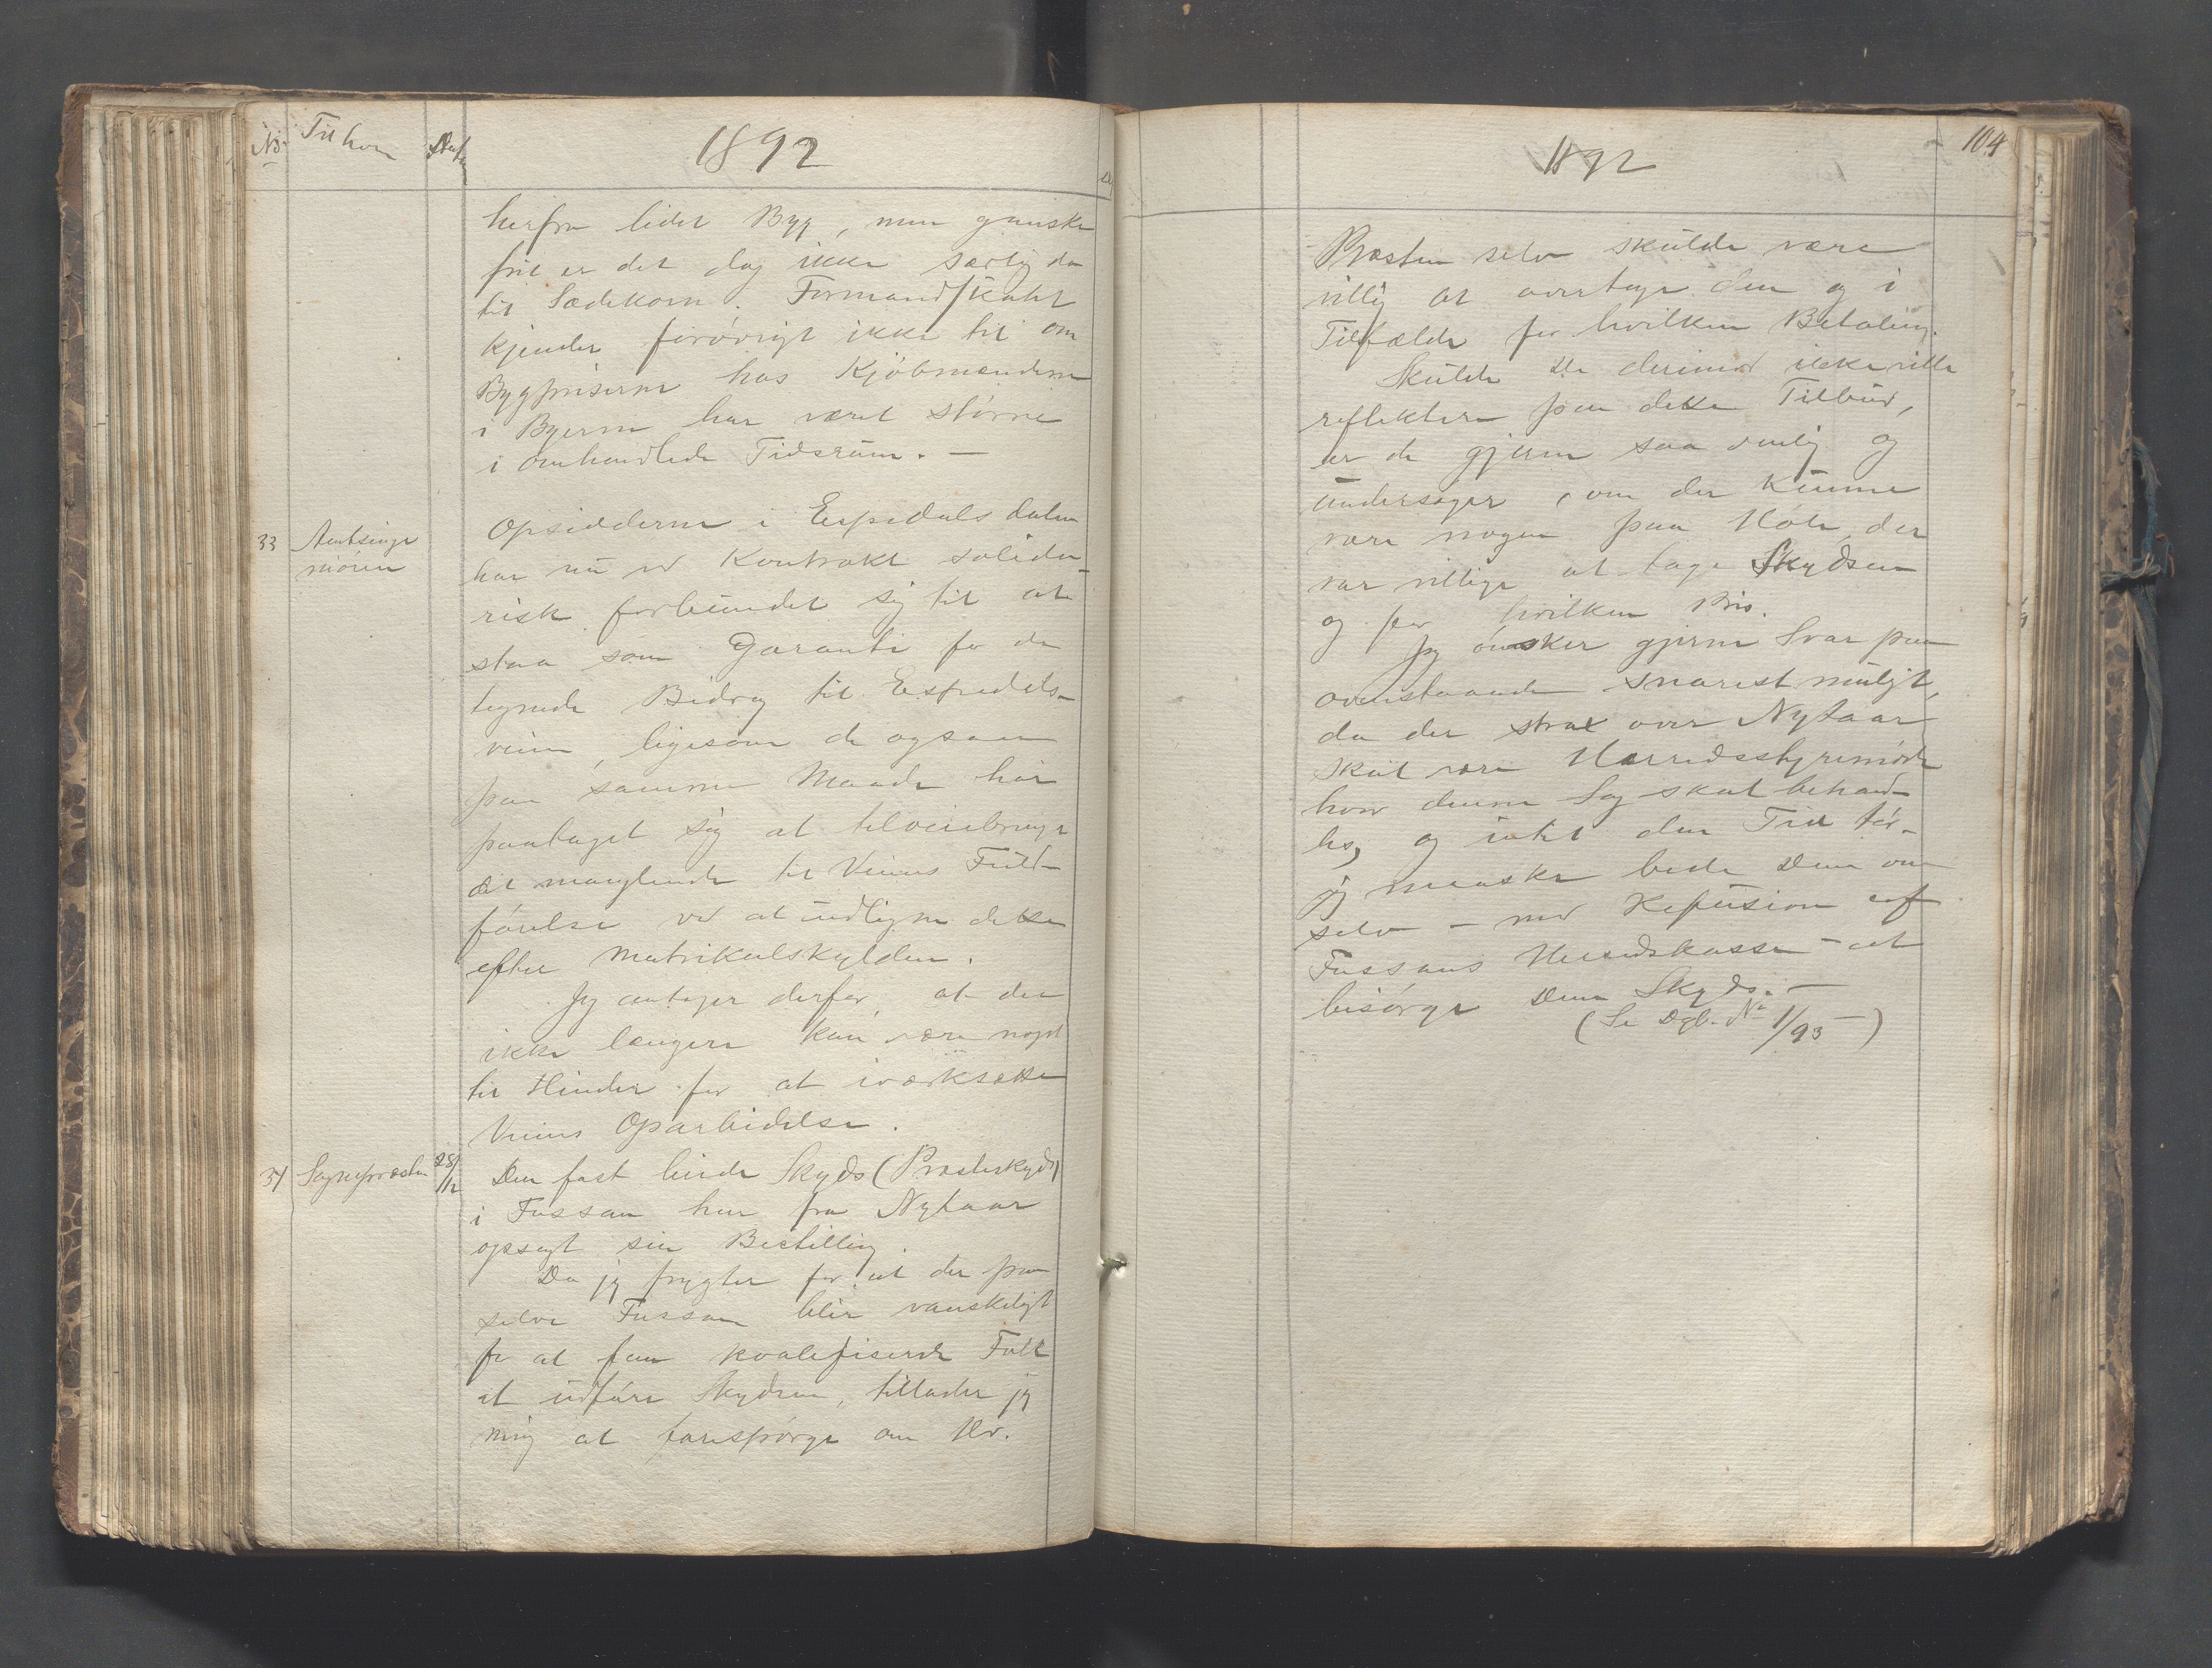 No. Til hvem Dato 1892
herfra lidet Byg, men ganske
frit er det dog ikke særlig da
til Sædekorn. Formandskabet
kjender forøvrigt ikke til om
Bygpriserne hos Kjøbmændene
i Byerne har været større
i omhandlede Tidsrum. —
33 Amtsinge
niøren
Opsidderne i Espedalsdalen
har nu ved Kontrakt solida-
risk forbundet sig til at
staa som Garanti for de
tegnede Bidrag til Espedals-
veien, ligesom de ogsaa
paa samme Maade har
paataget sig at tilveiebringe
det manglende til Veiens Fuld-
førelse ved at udligne dette
efter Matrikulskylden.
Jeg antager derfor, at der
ikke længere kan være noget
til Hinder for at iværksætte
Veiens Oparbeidelse.
34 Sognepræsten 28/12 Den fast leiede Skyds (Præsteskyds)
i Fossan har fra Nytaar
opsagt sin Bestilling.
Da jeg frygter for at det paa
selve Fossan blir vanskeligt
for at faa kvalifiserede Folk
at udføre Skydsen, tillader jeg
mig at forespørge om Hr.
1892 104
Præsten selv skulde være
villig at overtage den og i
Tilfælde for hvilken Betaling.
Skulde De derimod ikke ville
reflektere paa dette Tilbud,
er de gjerne saa venlig og
undersøger, om der kunne
være nogen paa Høle, der
var villige at tage Skydsen
og for hvilken Pris.
Jeg ønsker gjerne Svar paa
ovenstaaende snarest muligt,
da der strax over Nytaar
skal være Herredsstyremøde
hvor denne Sag skal behand-
les, og indtil den Tid tør-
jeg maaske bede Dem om
selv – med Refusion af
Fossans Herredskasse – at
besørge Deres Skyds. —
(Se Dgb. No 1/93 —)